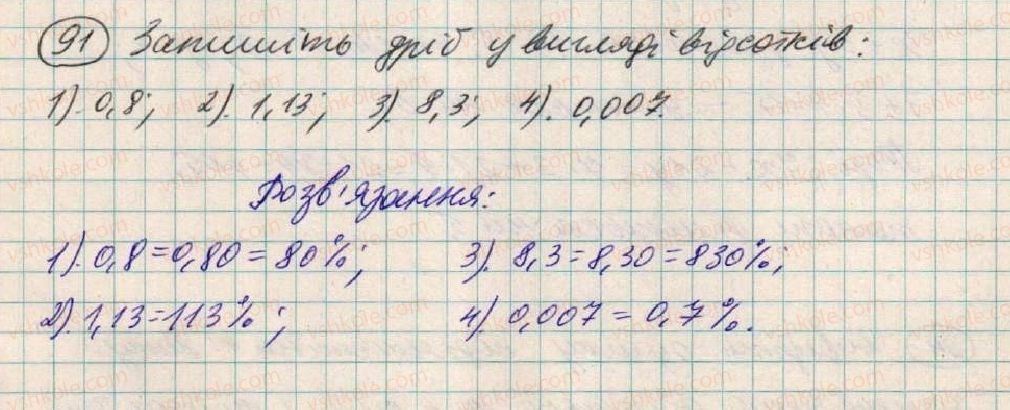 91 Запишіть дріб у вигляді відсотків:
1). 0,8; 2). 1,13; 3). 8,3; 4). 0,007.
Розв'язання:
1). 0,8 = 0,80 = 80%; 3). 8,3 = 8,30 = 830%;
2). 1,13 = 113%; 4) 0,007 = 0,7%.